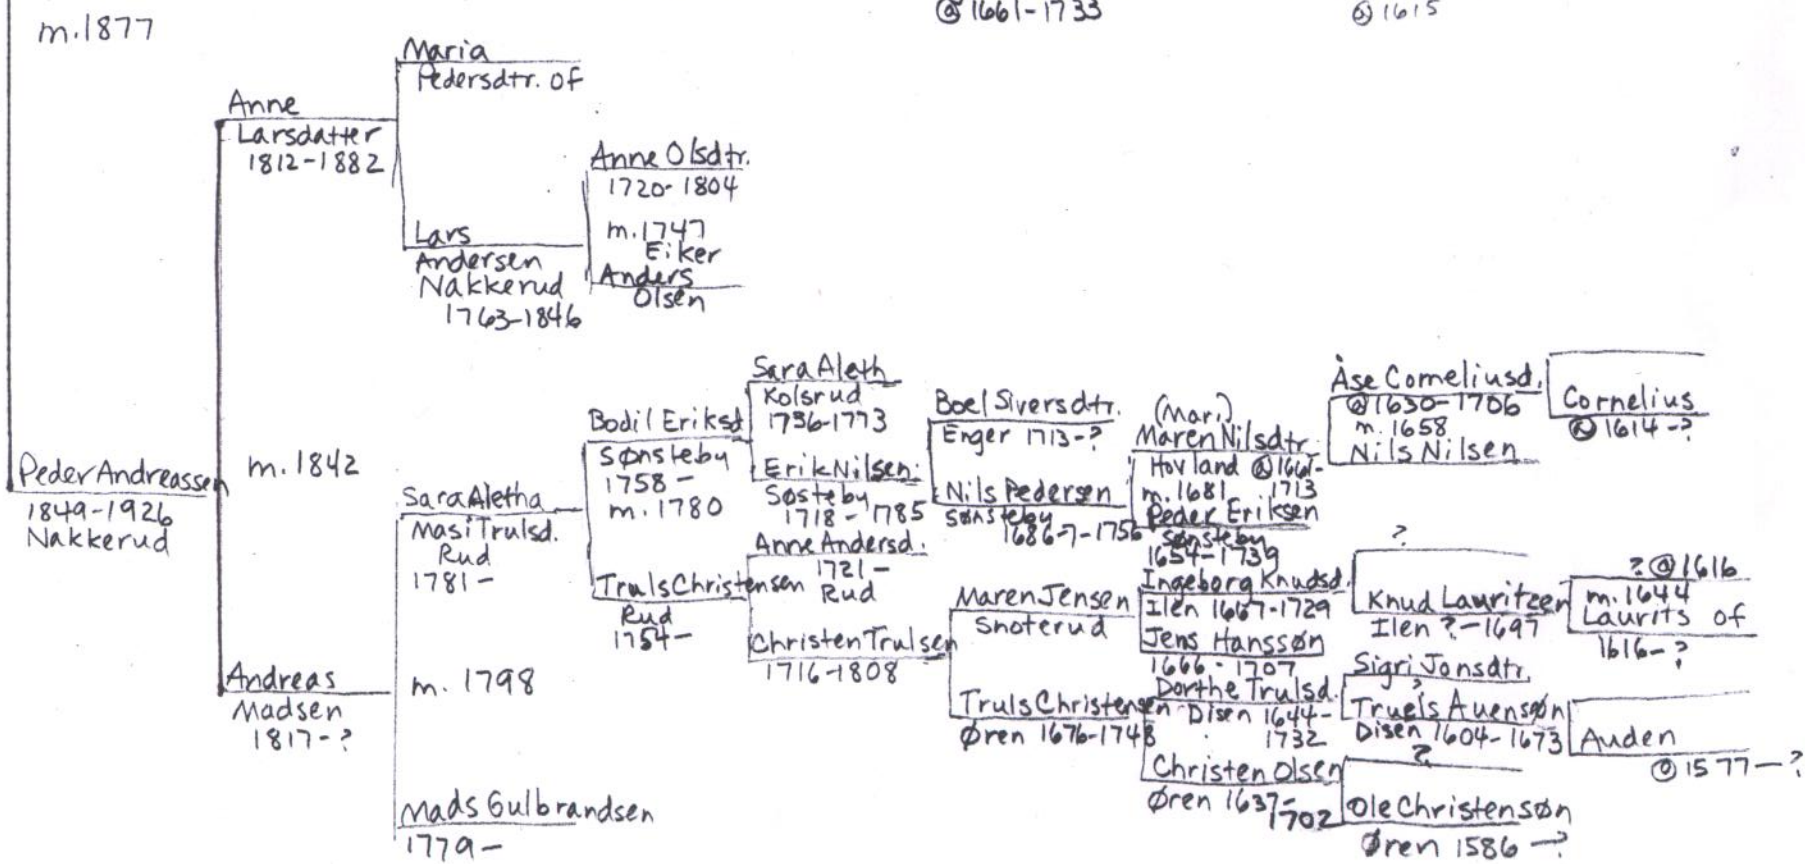 m.1877
ⓐ 1661-1733
ⓐ 1615
Maria
Pedersdtr. of
Anne
Larsdatter
1812-1882
Anne Olsdtr.
1720-1804
m.1747
Eiker
Anders
Olsen
Lars
Andersen
Nakkerud
1763-1846
Peder Andreassen
1849-1926
Nakkerud
m.1842
Sara Aletha
Masi Trulsd.
Rud
1781-
m. 1798
Andreas
Madsen
1817-?
Mads Gulbrandsen
1779-
Bodil Eriksd
Sønsteby
1758-
m. 1780
Truls Christensen
Rud
1754-
Sara Aleth
Kolsrud
1736-1773
Erik Nilsen
Søsteby
1718-1785
Anne Andersd.
1721-
Rud
Christen Trulsen
1716-1808
Boel Siversdtr.
Enger 1713-?
Nils Pedersen
Sønsteby
1686-7-1756
Maren Jensen
Snoterud
Truls Christensen
Øren 1676-1748
(Mari)
Maren Nilsdtr.
Hovland ⓐ 1661-
1713
m. 1681
Peder Eriksen
Sønsteby
1654-1739
Ingeborg Knudsd.
Ilen 1667-1729
Jens Hanssøn
1666-1707
Dorthe Trulsd.
Disen 1644-
1732
Christen Olsen
Øren 1637-
1702
Åse Corneliusd.
ⓐ 1630-1706
m. 1658
Nils Nilsen
Cornelius
ⓐ 1614-?
?
Knud Lauritzen
Ilen ?-1697
? ⓐ 1616
m. 1644
Laurits of
1616-?
Sigri Jonsdtr.
?
Truels Auensøn
Disen 1604-1673
Auden
ⓐ 1577-?
?
Ole Christensøn
Øren 1586-?